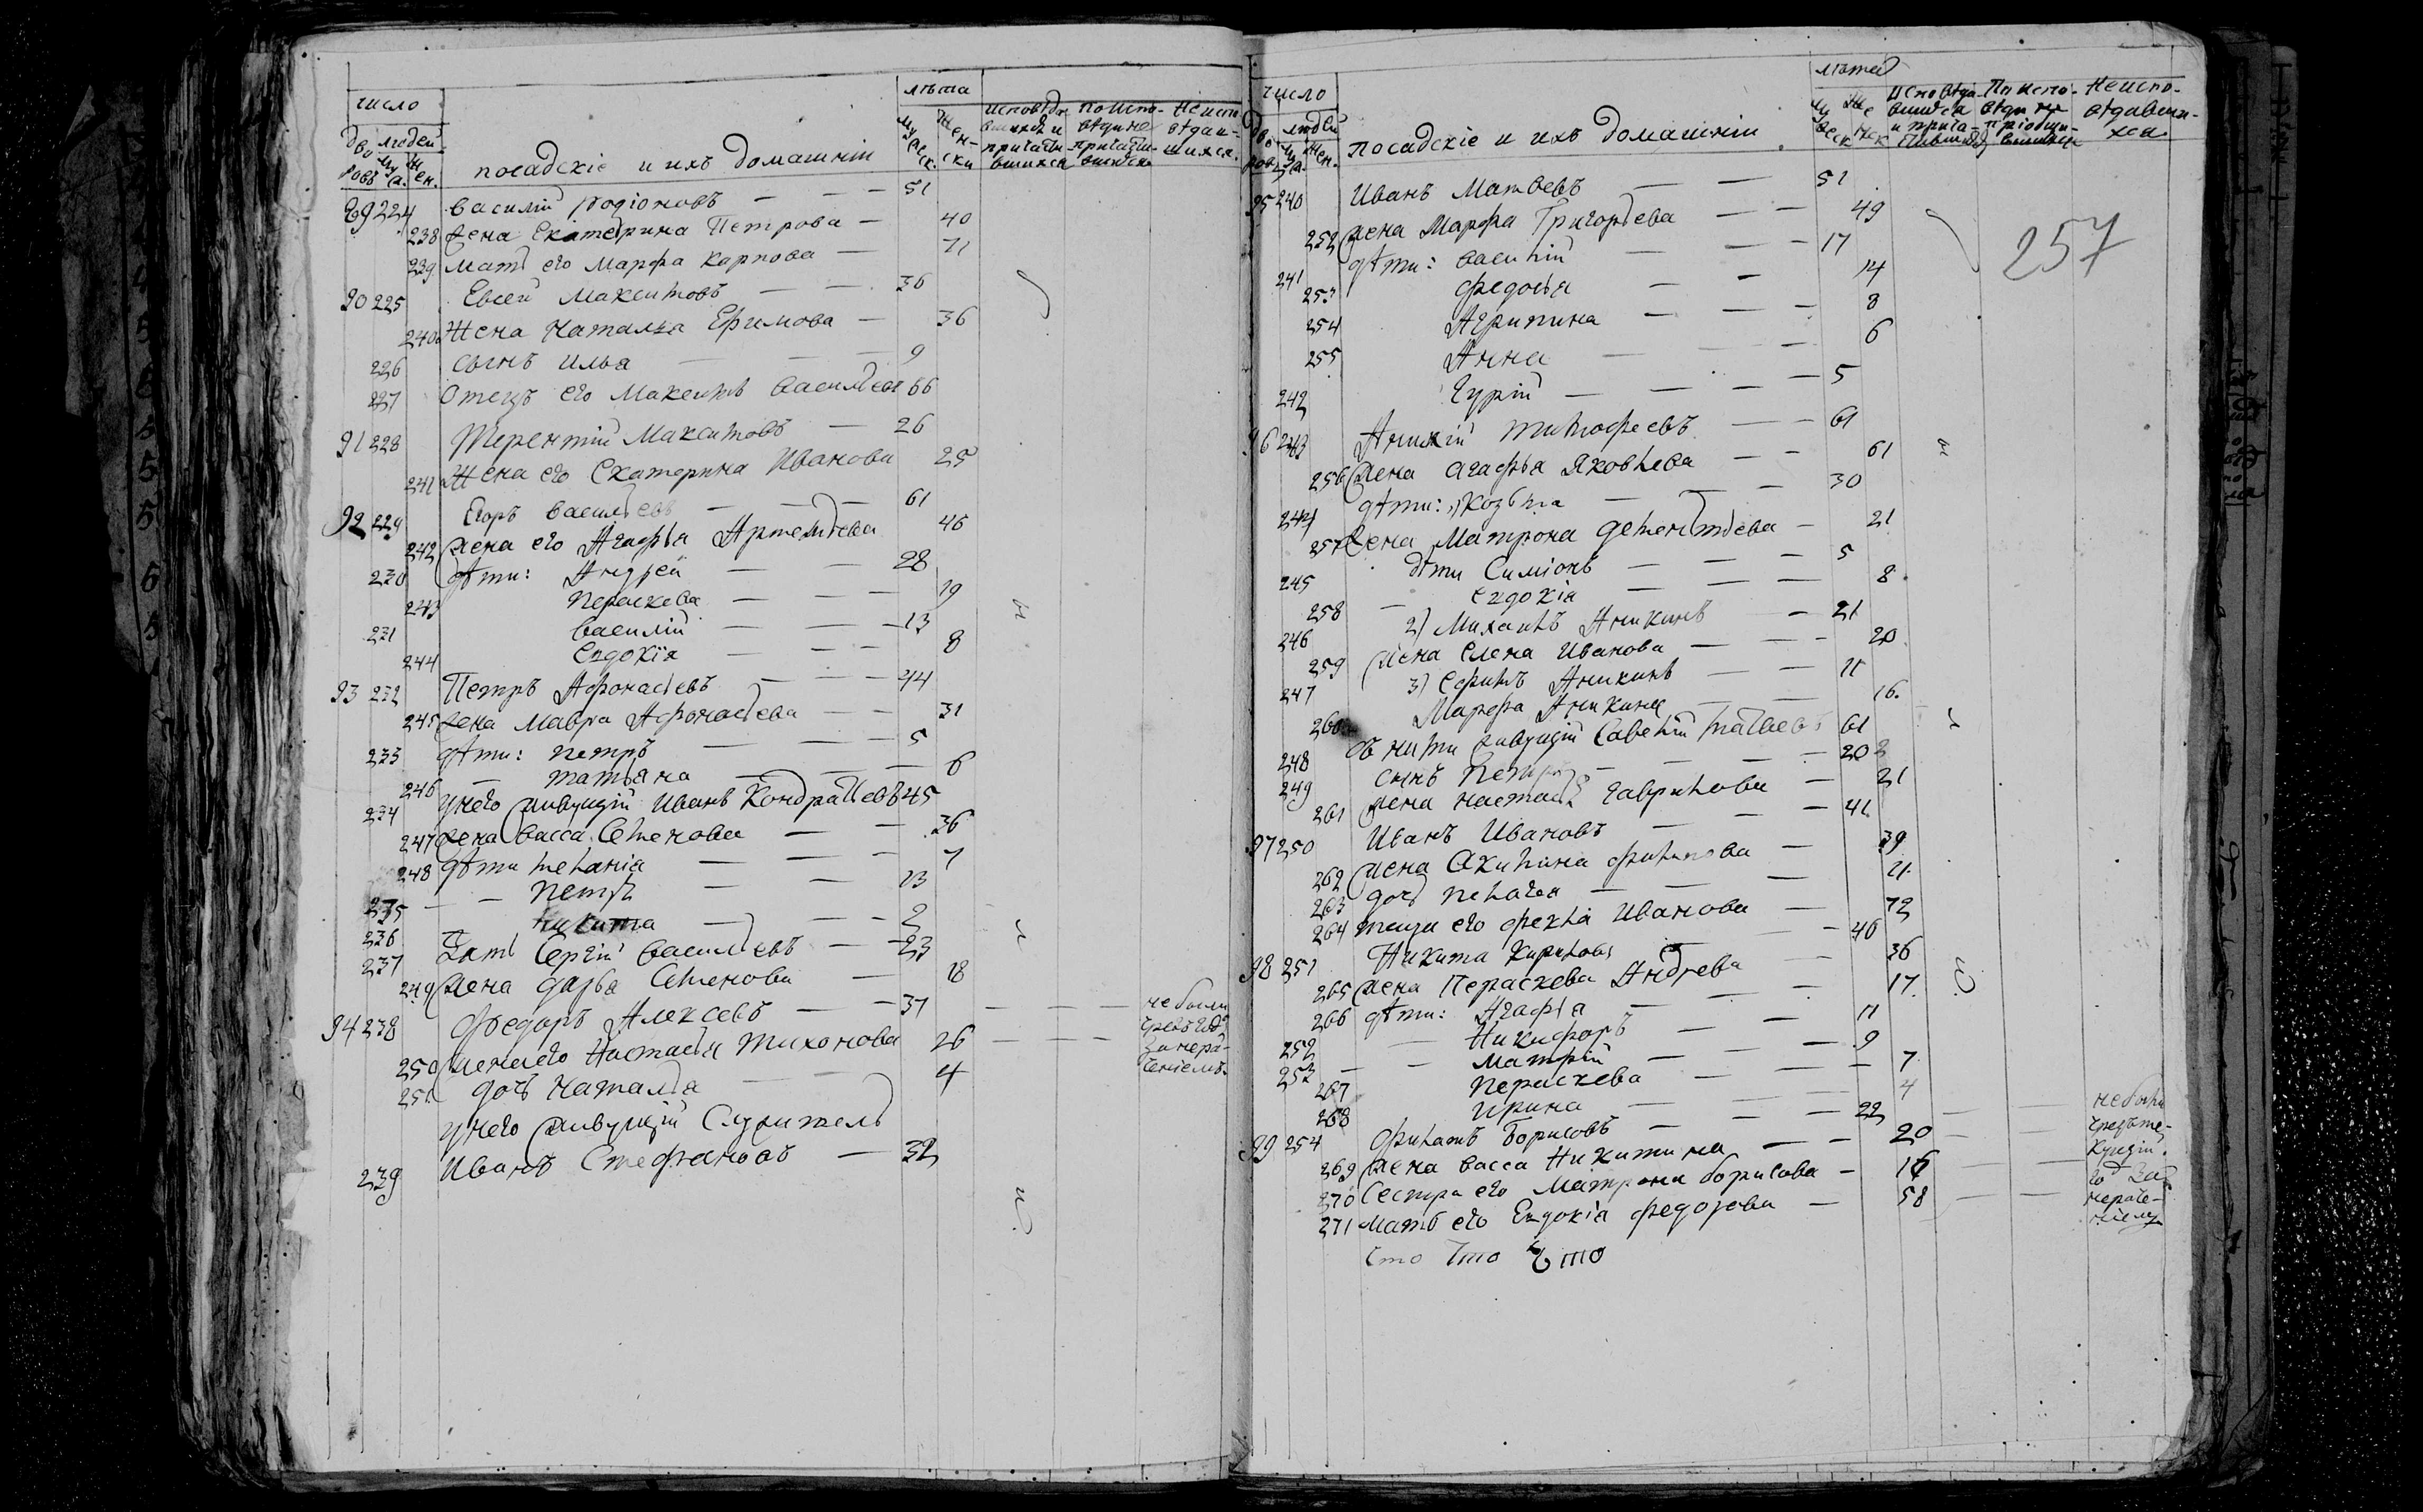 число
лѣта
дво
ровъ
людей
му
жен.
посадскіе и ихъ домашніи
муж
ск.
жен-
ски
исповѣда
вшихся и
причасти-
вшихся
по испо-
вѣди не
причасти-
вшихся
не испо
вѣдав-
шихся
89 224 Василій Родіоновъ — — — 51
238 Жена Екатерина Петрова — 40
239 мать его Марфа Карпова — 71
90 225 Евсей Максимовъ — — 36
240 Жена Наталья Ефимова — 36
226 сынъ Илья — — — 9
227 Отецъ его Максимъ Васильевъ 66
91 228 Терентій Максимовъ — 26
241 Жена его Екатерина Иванова 25
92 229 Егоръ Васильевъ — — — 61
242 Жена его Агафья Артемьева 46
230 дѣти: Андрей — — 28
243 Пераскева — — — 19
231 Василій — — — 13
244 Евдокія — — — 8
93 232 Петръ Афонасьевъ — — — 44
245 Жена Мавра Афонасьева — — 31
233 дѣти: Петръ — — — 5
246 — Татьяна — — — 6
234 у него живущій Иванъ Кондратьевъ 45
247 Жена Васса Семенова — — 36
248 дѣти Меланія — — — 7
235 — — Петръ — — 13
236 — Никита — — — 2
237 Зять Сергій Васильевъ — — 23
249 Жена Дарья Семенова — 18
94 238 Федоръ Алексевъ — — 37 — — —
250 Жена его Настасья Тихонова 26 — — —
251 дочь Наталья — — 4
не были
за нера-
ченіемъ.
у него живущій Служитель
239 Иванъ Стефановъ — 32
число
дво
ров
людей
му
жен.
посадскіе и ихъ домашніи
лѣта
му
жеск
же
нск
Исповѣда-
вшихся
и прича-
стившихся
По испо-
вѣди не
пріобщи-
вшихся
Не испо-
вѣдавши-
хся
257
95 240 Иванъ Матвевъ — — 51
252 Жена Марфа Григорьева — — 49
241 дѣти: Василій — — — 17
253 Федосья — — 14
254 Агрипина — — — 8
255 Анна — — — 6
242 Гурій — — — — 5
96 243 Аникій Тимофеевъ — — 61
256 Жена Агафья Яковлева — — 61
244 дѣти: 1) Козьма — — — 30
257 Жена Матрона Дементьева — 21
245 дѣти Симіонъ — — — 5
258 — Евдокія — — — 8
246 2) Михаилъ Аникинъ — 21
259 Жена Елена Иванова — — — 20
247 3) Ефимъ Аникинъ — — 11
260 Марфа Аникина — — 16
248 Съ ними живущій Савелій Матвевъ 61
249 сынъ Петръ — — — 20
261 Жена Настасья Гаврилова — 21
97 250 Иванъ Ивановъ — — — 41
262 Жена Акилина Филипова — 39
263 дочь Пелагея — — — 11
264 теща его Фекла Иванова — 72
98 251 Никита Кириловъ — — 46
265 Жена Пераскева Андреева — — 36
266 дѣти: Агафья — — 17
252 — Никифоръ — — 11
253 — — Матфій — — — 9
267 Пераскева — — — 7
268 Ирина — — — 4
99 254 Филатъ Борисовъ — — — 22 — —
269 Жена Васса Никитина — — 20 — —
270 Сестра его Матрона Борисова — 16 — —
271 Мать его Евдокія Федорова — 58 — —
не были
за
нераче-
ніемъ
Что Что Что